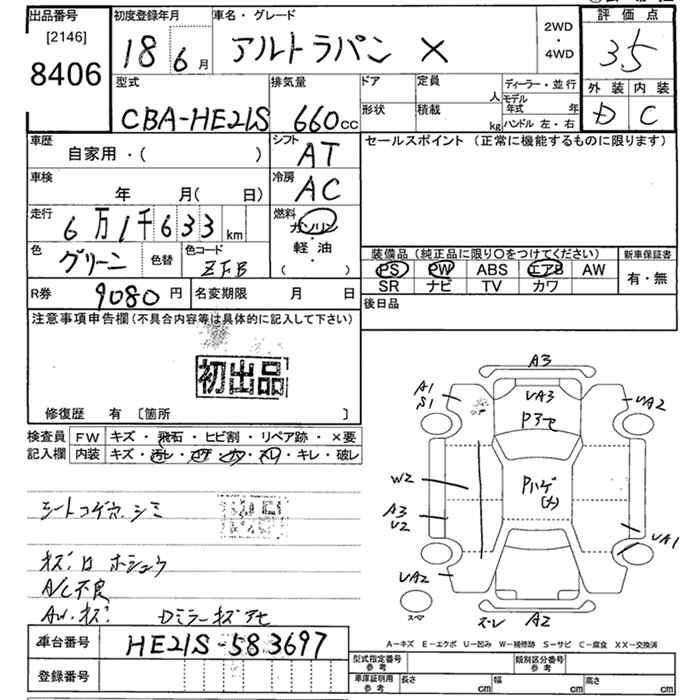 出品番号 初度登録年月 車名・グレード 評価点
[2146]
8406
18 年 6 月 アルトラパン X
2WD
・
4WD
3.5
外装 内装
D C
型式 排気量 ドア 定員 人 ディーラー・並行
CBA-HE21S 660cc
形状 積載 kg
モデル年式 年
ハンドル 左・右
車歴 シフト セールスポイント (正常に機能するものに限ります)
自家用・( ) AT
車検 冷房
年 月( 日) AC
走行 燃料
6万1千633km ガソリン
・
軽油
( )
色 グリーン 色替 色コード ZFB
装備品(純正品に限り〇をつけてください) 新車保証書
PS PW ABS エアB AW 有・無
SR ナビ TV カワ
R券 9080円 名変期限 月 日
後日品
注意事項申告欄(不具合内容等は具体的に記入して下さい)
初出品
修復歴 有 [箇所 ]
検査員記入欄 FW キズ・飛石・ヒビ割・リペア跡・×要
内装 キズ・汚レ・コゲ・穴・スレ・キレ・破レ
シートコゲ穴.シミ
キズ.ロ ホシュウ
A/C不良
AW.キズ. Dミラーキズ
A3
A1
S1
UA3
P3
UA2
W2
Pハゲ
(大)
A3
U2
UA1
UA2
スペ
ズレ A2
A-キズ E-エクボ U-凹み W-補修跡 S-サビ C-腐食 XX-交換済
車台番号 HE21S-583697
型式指定番号 参考 類別区分番号 参考
登録番号
車庫証明用 参考 長さ cm 幅 cm 高さ cm